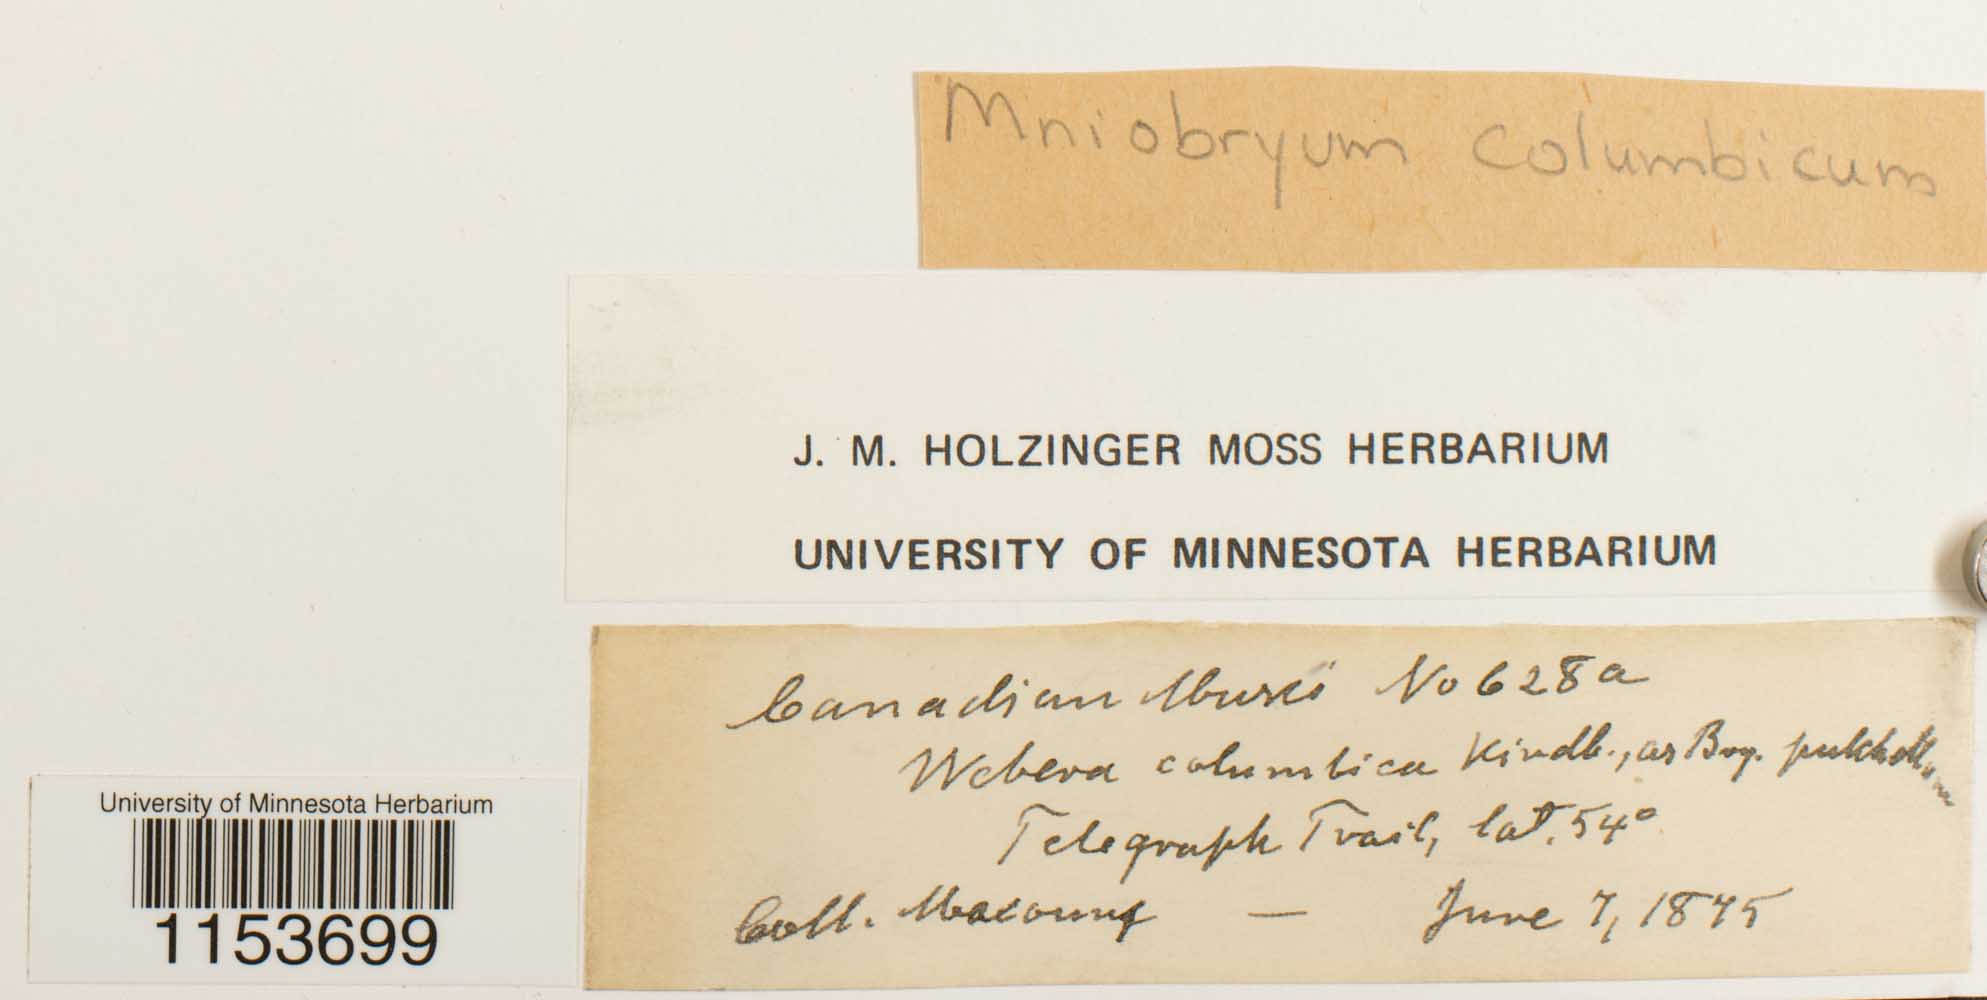 Mniobryum columbicum
J. M. HOLZINGER MOSS HERBARIUM
UNIVERSITY OF MINNESOTA HERBARIUM
Canadian Musci No 628a
Webera columbica Kindb., as Bry. pulchellum
Telegraph Trail, lat. 54°
Coll. Macoun — June 7, 1875
University of Minnesota Herbarium
1153699